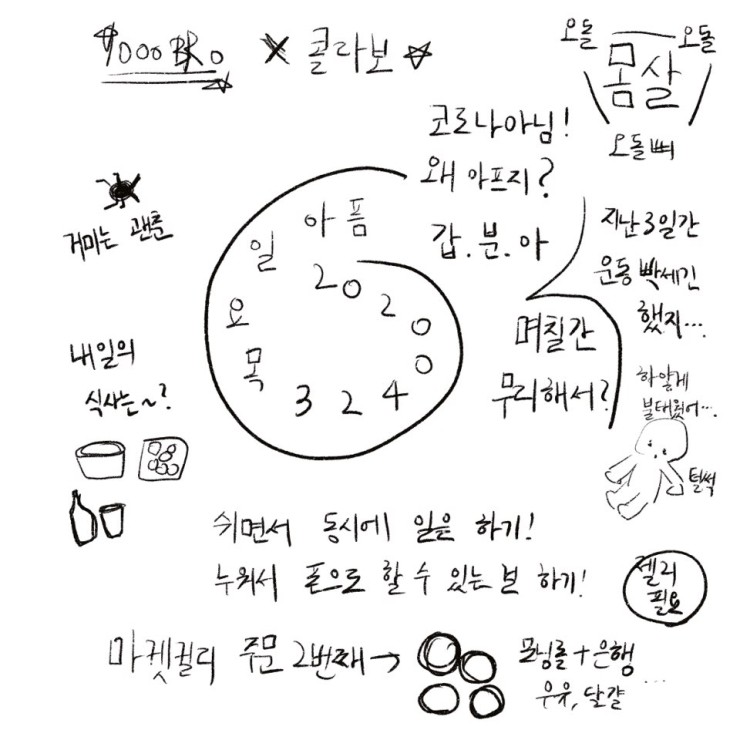 9000 BRO × 콜라보
오돌 오돌
몸살
오돌 삐
코로나아님!
왜 아프지?
갑.분.아
거미는 괜춘
아픔
20200
324
목요일
지난 3일간
운동 빡세긴
했지...
며칠간
무리해서?
내일의
식사는~?
하얗게
불태웠어...
털썩
쉬면서 동시에 일은 하기!
누워서 폰으로 할 수 있는 분 하기!
젤리
필요
마켓컬리 주문 2번째→
모닝롤+은행
우유, 달걀 ...